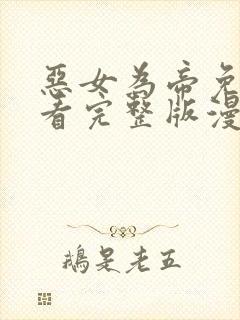 惡女為帝免
看完整版漫
鵝是老五